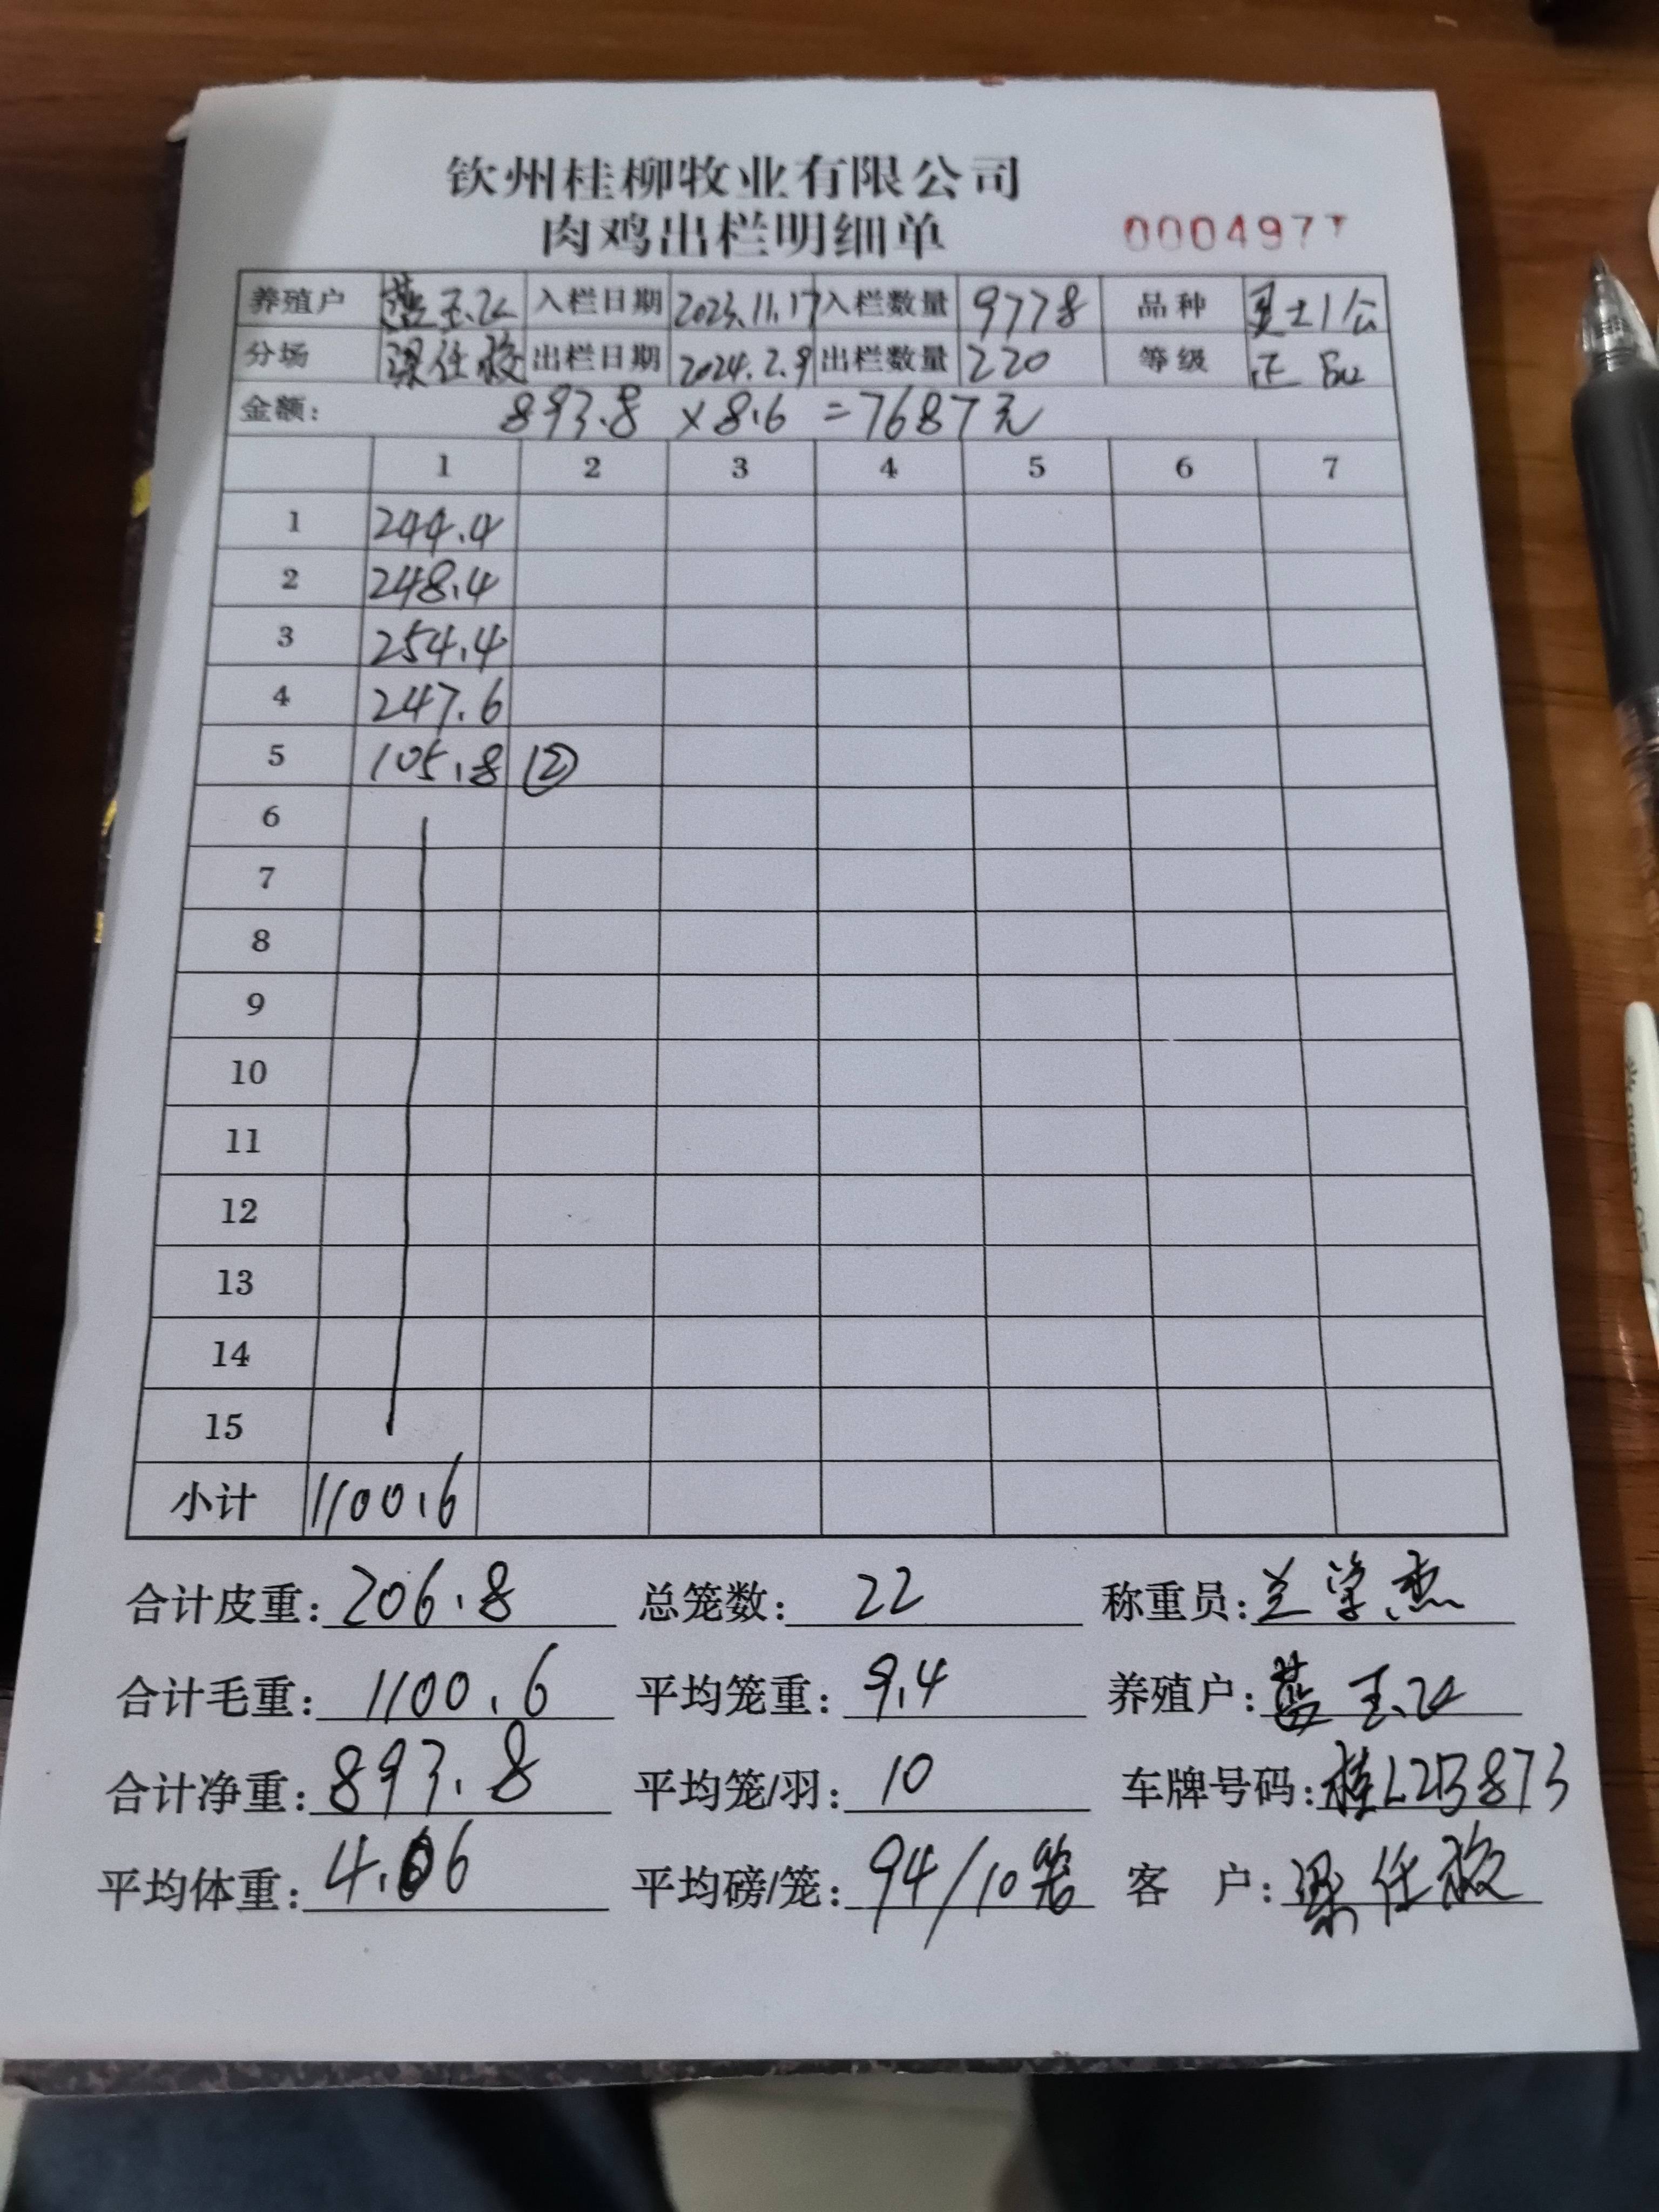 钦州桂柳牧业有限公司
肉鸡出栏明细单 0004977
养殖户 蓝玉 入栏日期 2023.11.17 入栏数量 9778 品种 1公
分场 梁任 出栏日期 2024.2.9 出栏数量 220 等级 正
金额: 893.8 ×8.6 =7687元
1 2 3 4 5 6 7
1 244.4
2 248.4
3 254.4
4 247.6
5 105.8 ②
6
7
8
9
10
11
12
13
14
15
小计 1100.6
合计皮重: 206.8 总笼数: 22 称重员: 兰学杰
合计毛重: 1100.6 平均笼重: 9.4 养殖户: 蓝玉
合计净重: 893.8 平均笼/羽: 10 车牌号码: 桂L2B873
平均体重: 4.06 平均磅/笼: 94/10笼 客 户: 梁任